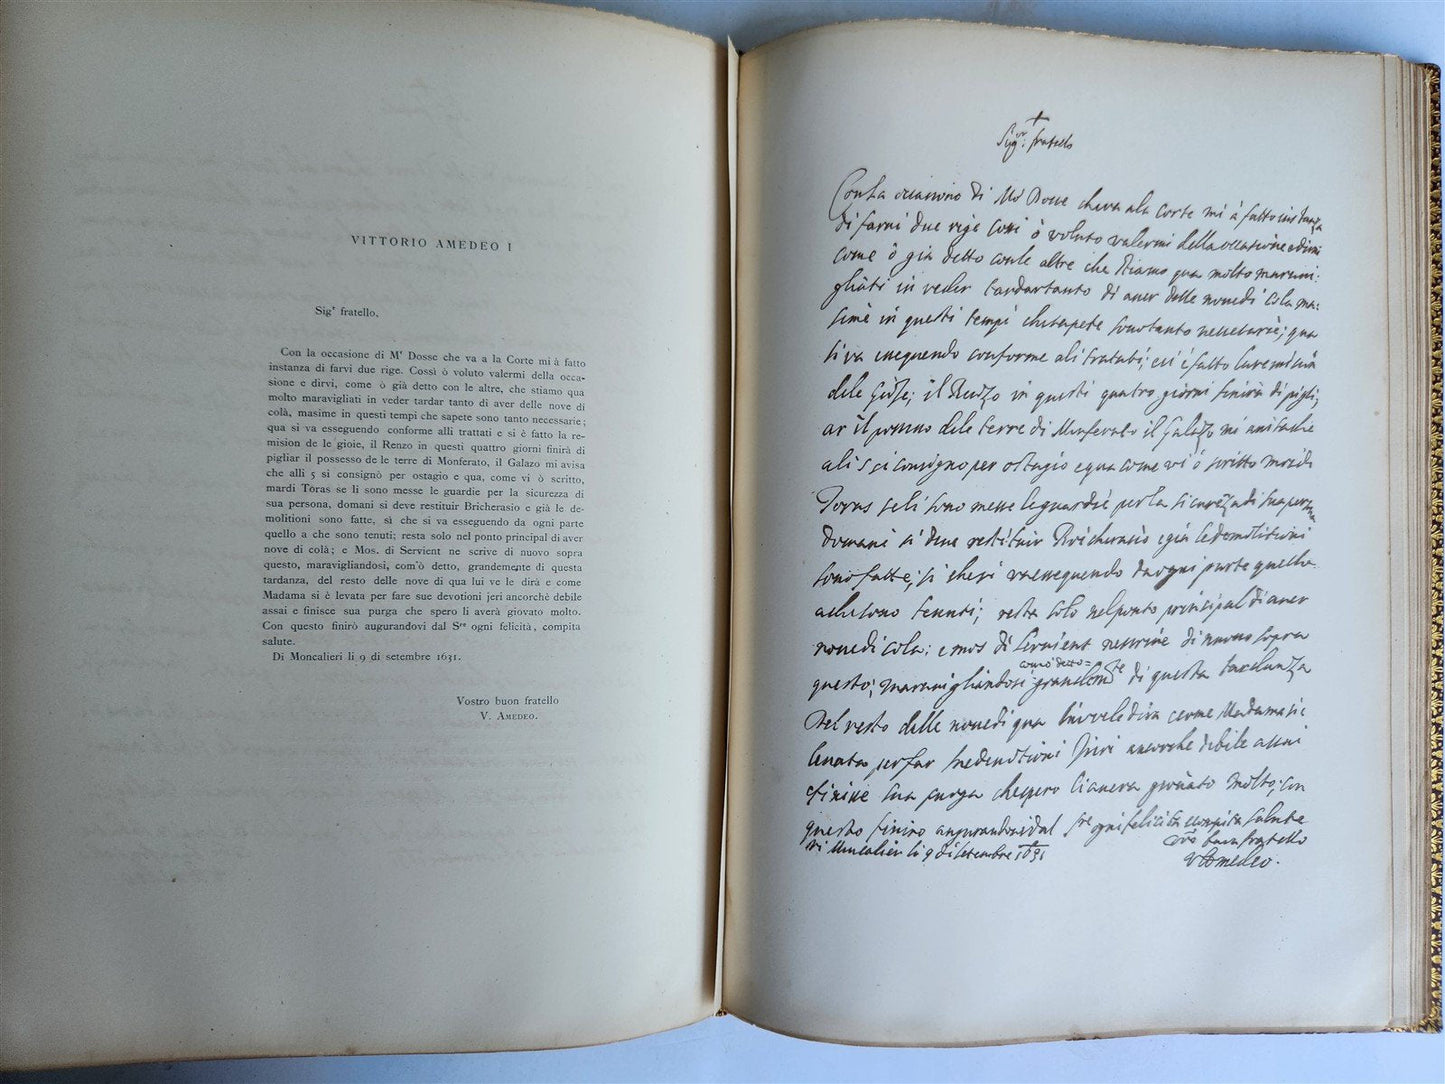 VITTORIO AMEDEO I
Sigʳ fratello,
Con la occasione di Mʳ Dosse che va a la Corte mi à fatto
instanza di farvi due rige. Cossì ò voluto valermi della occa-
sione e dirvi, come ò già detto con le altre, che stiamo qua
molto maravigliati in veder tardar tanto di aver delle nove di
colà, masime in questi tempi che sapete sono tanto necessarie;
qua si va esseguendo conforme alli trattati e si è fatto la re-
mision de le gioie, il Renzo in questi quattro giorni finirà di
pigliar il possesso de le terre di Monferato, il Galazo mi avisa
che alli 5 si consignò per ostagio e qua, come vi ò scritto,
mardi Toras se li sono messe le guardie per la sicurezza di
sua persona, domani si deve restituir Bricherasio e già le de-
molitioni sono fatte, sì che si va esseguendo da ogni parte
quello a che sono tenuti; resta solo nel ponto principal di aver
nove di colà; e Mos. di Servient ne scrive di nuovo sopra
questo, maravigliandosi, com'ò detto, grandemente di questa
tardanza, del resto delle nove di qua lui ve le dirà e come
Madama si è levata per fare sue devotioni jeri ancorchè debile
assai e finisce sua purga che spero li averà giovato molto.
Con questo finirò augurandovi dal Sʳᵉ ogni felicità, compita
salute.
Di Moncalieri li 9 di setembre 1631.
Vostro buon fratello
V. AMEDEO.
+
Sigᵒʳ: fratello
Con la occasione di Mʳ Dosse che va ala Corte mi à fatto instanza
di farvi due rige Cossi ò voluto valermi della occasione e dirvi
come ò già detto con le altre che stiamo qua molto maravi:
gliati in veder tardar tanto di aver delle nove di Cola ma:
sime in questi tempi che sapete sono tanto necessarie; qua
si va esseguendo conforme ali tratati; e si è fatto la remision
dele Gioie; il Renzo in questi quatro giorni finirà di pigli;
ar il possesso dele terre di Monferato il Galazo mi avisa che
ali 5 si consigno per ostagio e qua come vi ò scritto mardi
Toras se li sono messe le guardie per la sicurezza di sua persona
domani si deve restituir Bricherasio e già le demolitioni
sono fatte; si che si va esseguendo da ogni parte quello
a che sono tenuti; resta solo nel ponto principal di aver
nove di cola; e mos di Servient ne scrive di nuovo sopra
questo; maravigliandosi com'ò detto grandemᵗᵉ di questa tardanza
Del resto delle nove di qua lui ve le dira e come Madama si è
levata per far sue devotioni Jeri ancorche debile assai
e finisse sua purga che spero li avera giovato molto; con
questo finiro augurandovi dal Sʳᵉ ogni felicita compita salute
Di Moncalier li 9 di setembre 1631
vʳᵒ buon fratello
V Amedeo.